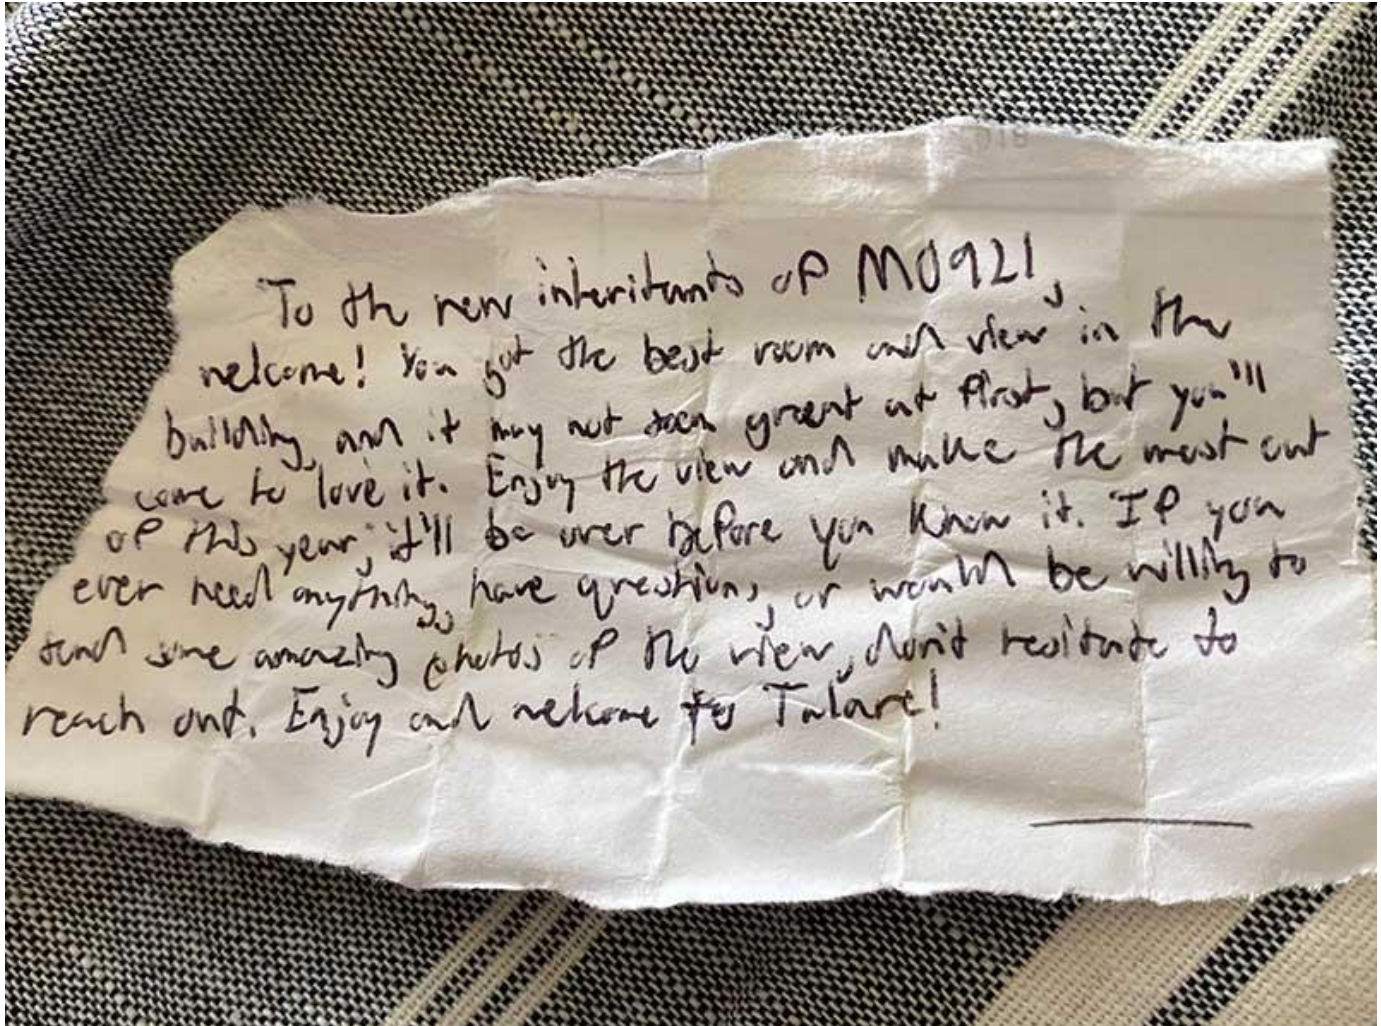 To the new inheritants of M0921,
welcome! You got the best room and view in the
building, and it may not seem great at first, but you'll
come to love it. Enjoy the view and make the most out
of this year, it'll be over before you know it. If you
ever need anything, have questions, or would be willing to
send some amazing photos of the view, don't hesitate to
reach out. Enjoy and welcome to Tulare!